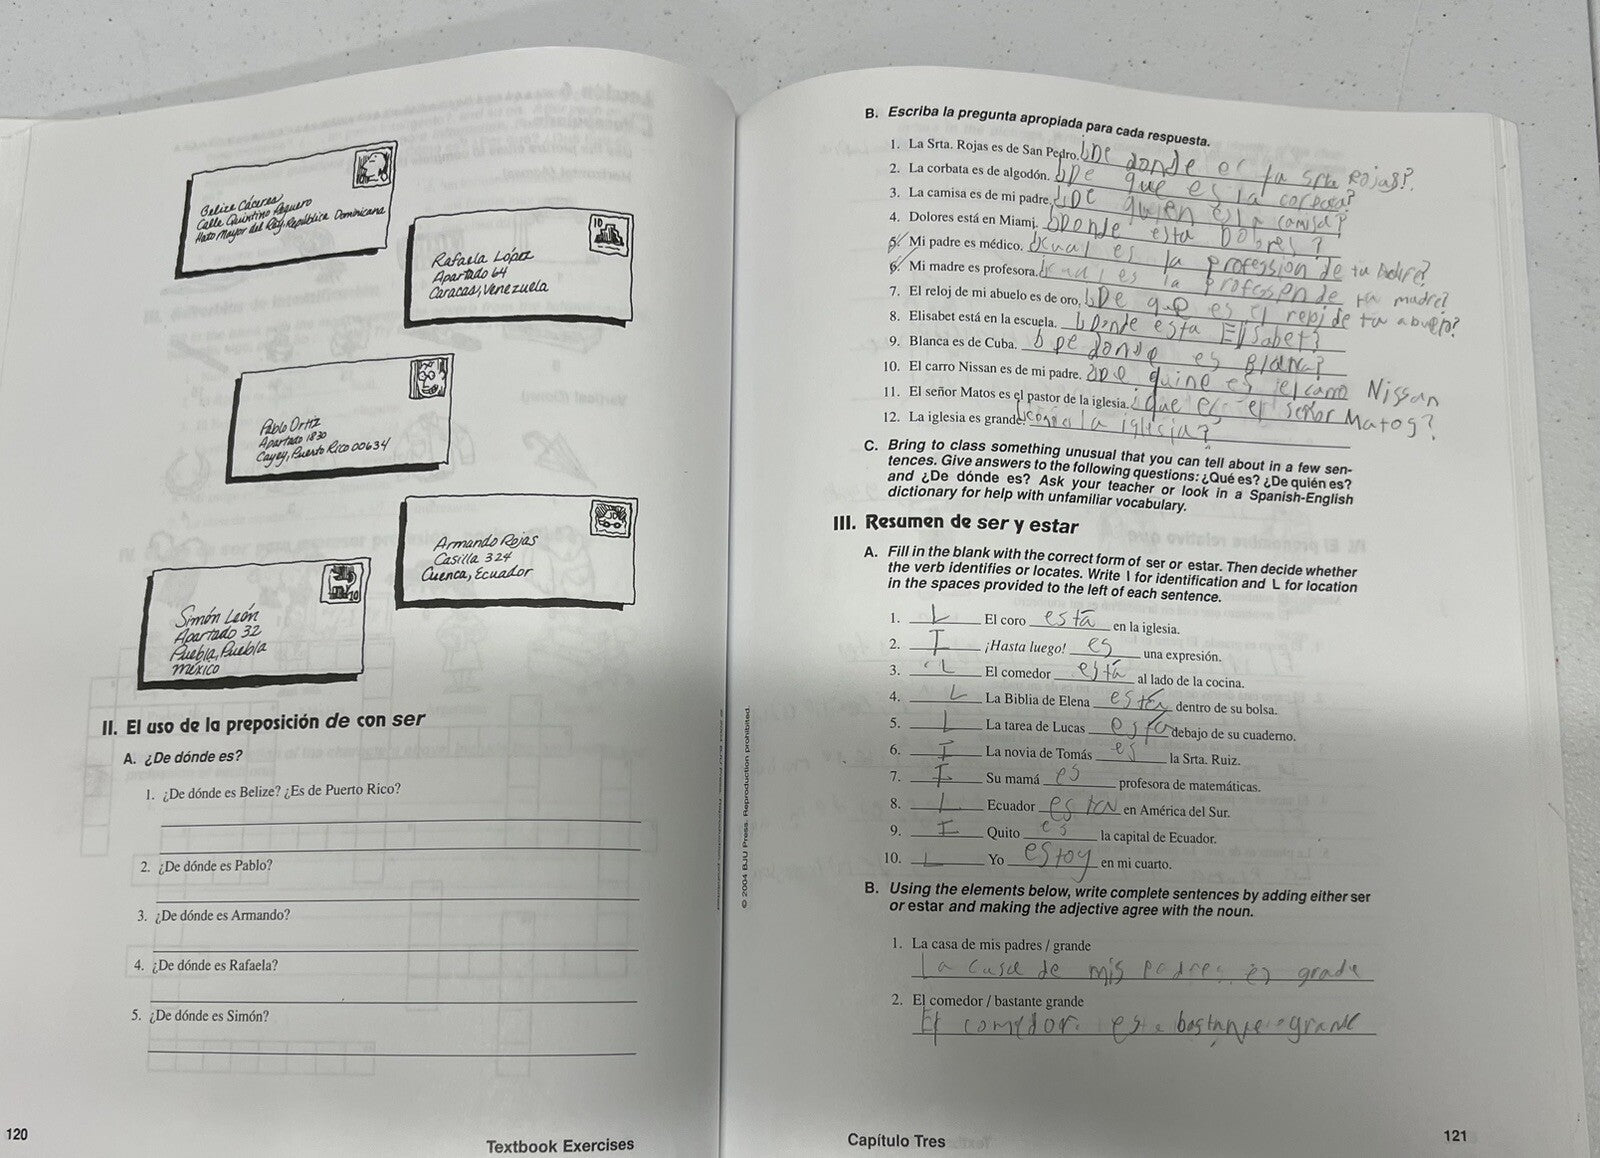 Belize Cáceres
Calle Quintino Peguero
Hato Mayor del Rey, República Dominicana
Rafaela López
Apartado 64
Caracas, Venezuela
10
Pablo Ortiz
Apartado 1830
Cayey, Puerto Rico 00634
Armando Rojas
Casilla 324
Cuenca, Ecuador
Simón León
Apartado 32
Puebla, Puebla
México
II. El uso de la preposición de con ser
A. ¿De dónde es?
1. ¿De dónde es Belize? ¿Es de Puerto Rico?
2. ¿De dónde es Pablo?
3. ¿De dónde es Armando?
4. ¿De dónde es Rafaela?
5. ¿De dónde es Simón?
120
Textbook Exercises
© 2004 BJU Press. Reproduction prohibited.
B. Escriba la pregunta apropiada para cada respuesta.
1. La Srta. Rojas es de San Pedro. ¿De donde es la Srta Rojas?
2. La corbata es de algodón. ¿De que es la corbata?
3. La camisa es de mi padre. ¿De quien es la camisa?
4. Dolores está en Miami. ¿Donde esta Dolores?
5. Mi padre es médico. ¿cual es la profession de tu padre?
6. Mi madre es profesora. ¿cual es la profession de tu madre?
7. El reloj de mi abuelo es de oro. ¿De que es el reloj de tu abuelo?
8. Elisabet está en la escuela. ¿Donde esta Elisabet?
9. Blanca es de Cuba. ¿De donde es Blanca?
10. El carro Nissan es de mi padre. ¿De quine es el carro Nissan
11. El señor Matos es el pastor de la iglesia. ¿que es el señor Matos?
12. La iglesia es grande. la iglesia?
C. Bring to class something unusual that you can tell about in a few sen-
tences. Give answers to the following questions: ¿Qué es? ¿De quién es?
and ¿De dónde es? Ask your teacher or look in a Spanish-English
dictionary for help with unfamiliar vocabulary.
III. Resumen de ser y estar
A. Fill in the blank with the correct form of ser or estar. Then decide whether
the verb identifies or locates. Write I for identification and L for location
in the spaces provided to the left of each sentence.
1. L El coro está en la iglesia.
2. I ¡Hasta luego! es una expresión.
3. L El comedor está al lado de la cocina.
4. L La Biblia de Elena está dentro de su bolsa.
5. L La tarea de Lucas está debajo de su cuaderno.
6. I La novia de Tomás es la Srta. Ruiz.
7. I Su mamá es profesora de matemáticas.
8. L Ecuador esta en América del Sur.
9. I Quito es la capital de Ecuador.
10. L Yo estoy en mi cuarto.
B. Using the elements below, write complete sentences by adding either ser
or estar and making the adjective agree with the noun.
1. La casa de mis padres / grande
La casa de mis padres es grade
2. El comedor / bastante grande
El comedor esta bastante grande
Capítulo Tres
121